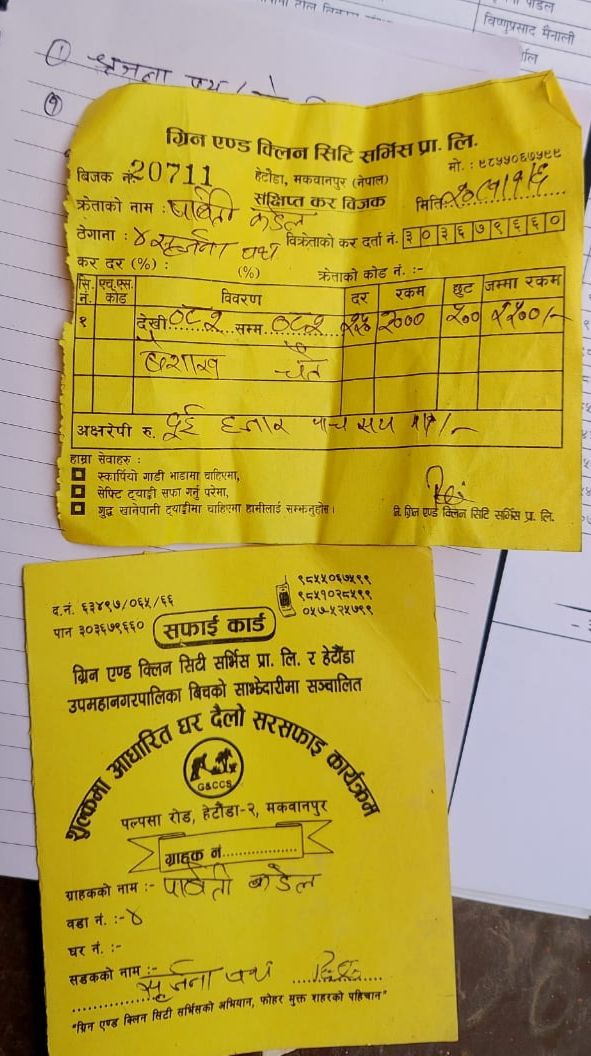 पौडेल
विष्णुप्रसाद मैनाली
१
ग्रिन एण्ड क्लिन सिटि सर्भिस प्रा. लि.
मो. : ९८५५०६७५९९
बिजक नं. 20711 हेटौंडा, मकवानपुर (नेपाल)
संक्षिप्त कर बिजक मिति:
क्रेताको नाम : पार्वती कडेल
ठेगाना : ४ सृर्जना पथ विक्रेताको कर दर्ता नं. ३०३६७९६६०
कर दर (%) : (%) क्रेताको कोड नं. :-
सि. नं. एच.एस. कोड विवरण दर रकम छुट जम्मा रकम
१ देखी ०८२ सम्म ०८२ २५० ३००० ५०० २५००/-
बैशाख चैत
अक्षरेपी रु. दुई हजार पाच सय मात्र/-
हाम्रा सेवाहरु :
स्कार्पियो गाडी भाडामा चाहिएमा,
सेफ्टि ट्याङ्की सफा गर्नु परेमा,
शुद्ध खानेपानी ट्याङ्कीमा चाहिएमा हामीलाई सम्झनुहोस ।
नि. ग्रिन एण्ड क्लिन सिटि सर्भिस प्रा. लि.
द.नं. ६३४९७/०६५/६६
पान ३०३६७९६६०
९८५५०६७५९९
९८५१०२८५९९
०५७-५२५७९९
सफाई कार्ड
ग्रिन एण्ड क्लिन सिटी सर्भिस प्रा. लि. र हेटौंडा
उपमहानगरपालिका बिचको साझेदारीमा सञ्चालित
शुल्कमा आधारित घर दैलो सरसफाइ कार्यक्रम
G&CCS
पल्पसा रोड, हेटौंडा-२, मकवानपुर
ग्राहक नं..............
ग्राहकको नाम :- पार्वती कडेल
वडा नं. :- ४
घर नं. :-
सडकको नाम :- सृर्जना पथ
"ग्रिन एण्ड क्लिन सिटी सर्भिसको अभियान, फोहर मुक्त शहरको पहिचान"